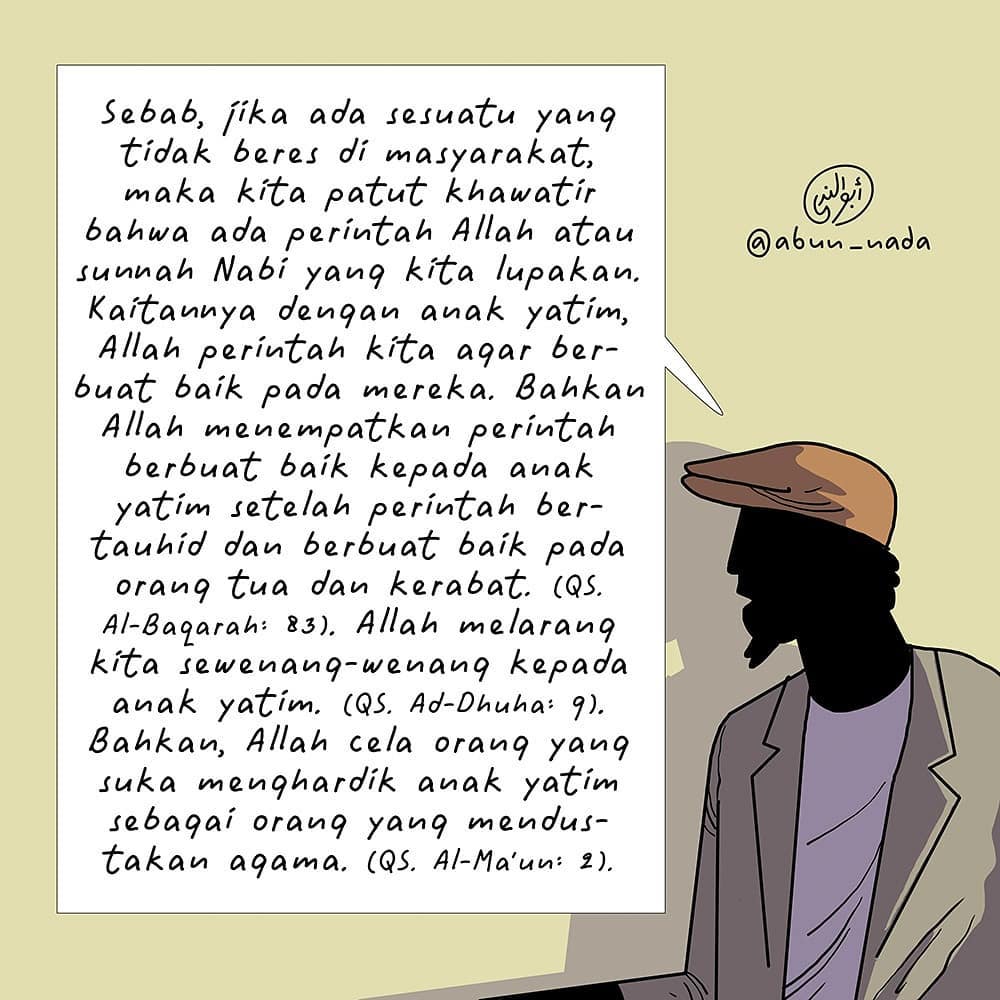 Sebab, jika ada sesuatu yang
tidak beres di masyarakat,
maka kita patut khawatir
bahwa ada perintah Allah atau
sunnah Nabi yang kita lupakan.
Kaitannya dengan anak yatim,
Allah perintah kita agar ber-
buat baik pada mereka. Bahkan
Allah menempatkan perintah
berbuat baik kepada anak
yatim setelah perintah ber-
tauhid dan berbuat baik pada
orang tua dan kerabat. (QS.
Al-Baqarah: 83). Allah melarang
kita sewenang-wenang kepada
anak yatim. (QS. Ad-Dhuha: 9).
Bahkan, Allah cela orang yang
suka menghardik anak yatim
sebagai orang yang mendus-
takan agama. (QS. Al-Ma'un: 2).
أبو الندى
@abun_nada